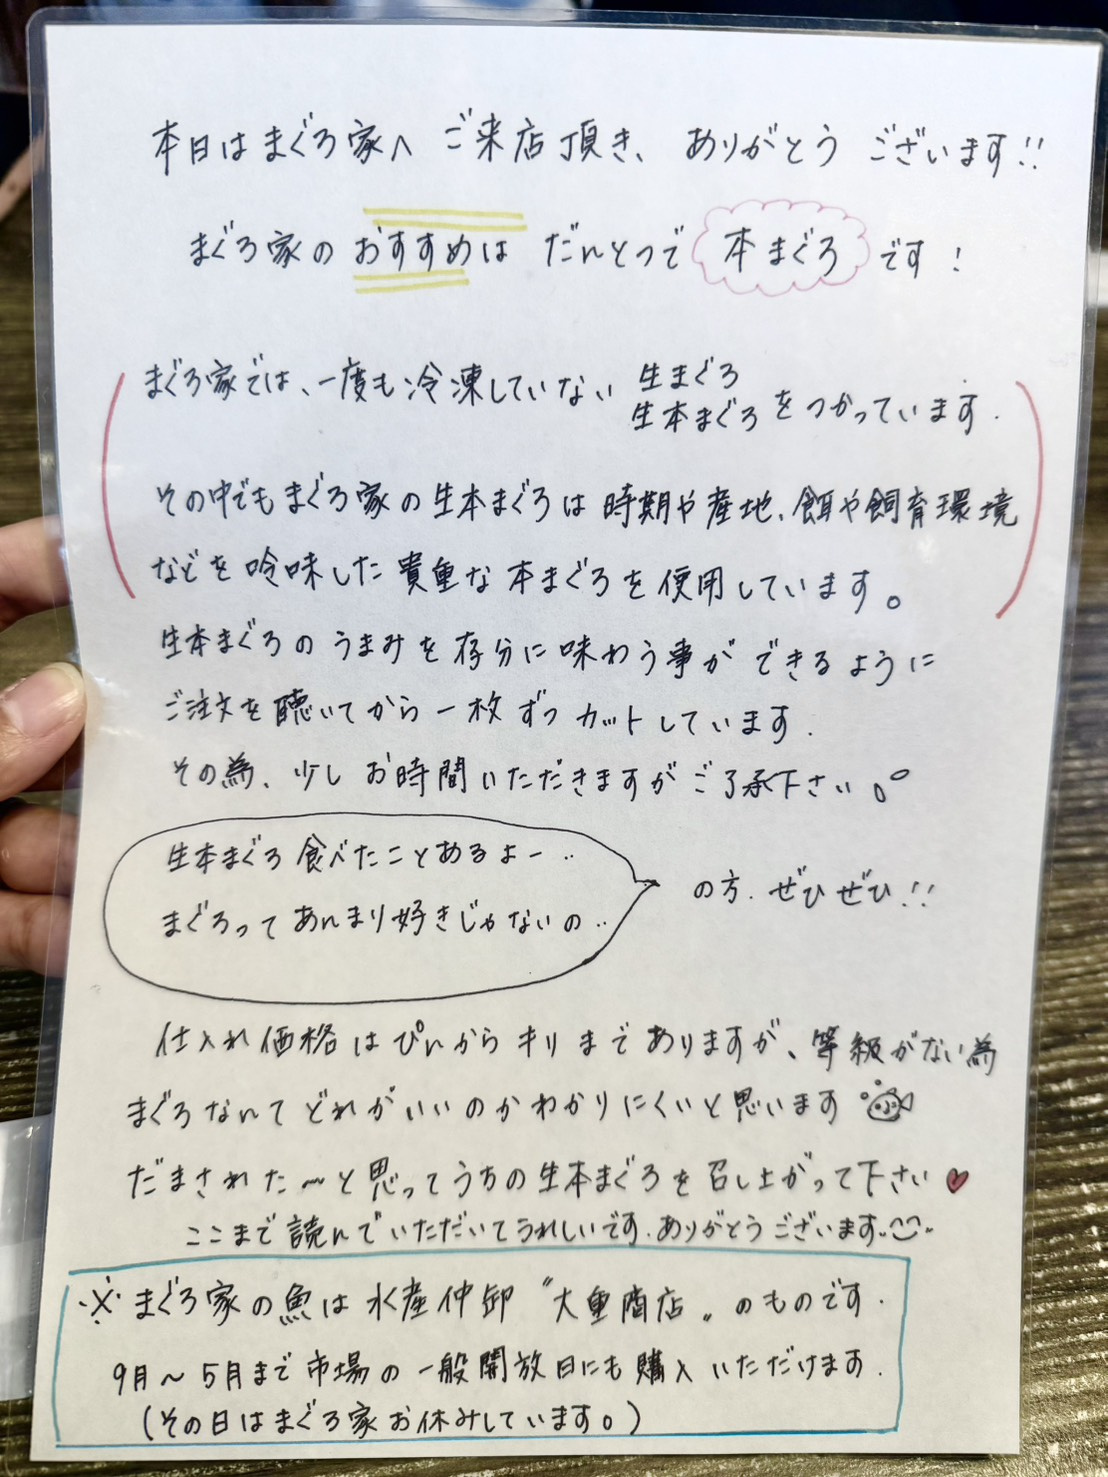 本日はまぐろ家へ ご来店頂き、ありがとう ございます!!
まぐろ家の おすすめは だんとつで 本まぐろ です!
まぐろ家では、一度も冷凍していない 生まぐろ
生本まぐろ をつかっています.
その中でもまぐろ家の生本まぐろは 時期や産地、餌や飼育環境
などを吟味した貴重な本まぐろを使用しています。
生本まぐろのうまみを存分に味わう事ができるように
ご注文を聴いてから一枚ずつカットしています.
その為、少しお時間いただきますがご了承下さい。
生本まぐろ食べたことあるよー..
まぐろってあんまり好きじゃないの..
の方.ぜひぜひ!!
仕入れ価格はぴんからキリまでありますが、等級がない為
まぐろなんてどれがいいのかわかりにくいと思います
だまされた〜と思ってうちの生本まぐろを召し上がって下さい♥
ここまで読んでいただいてうれしいです.ありがとうございます..
※まぐろ家の魚は水産仲卸〝大重商店〟のものです.
9月〜5月まで市場の一般開放日にも購入いただけます.
(その日はまぐろ家お休みしています。)